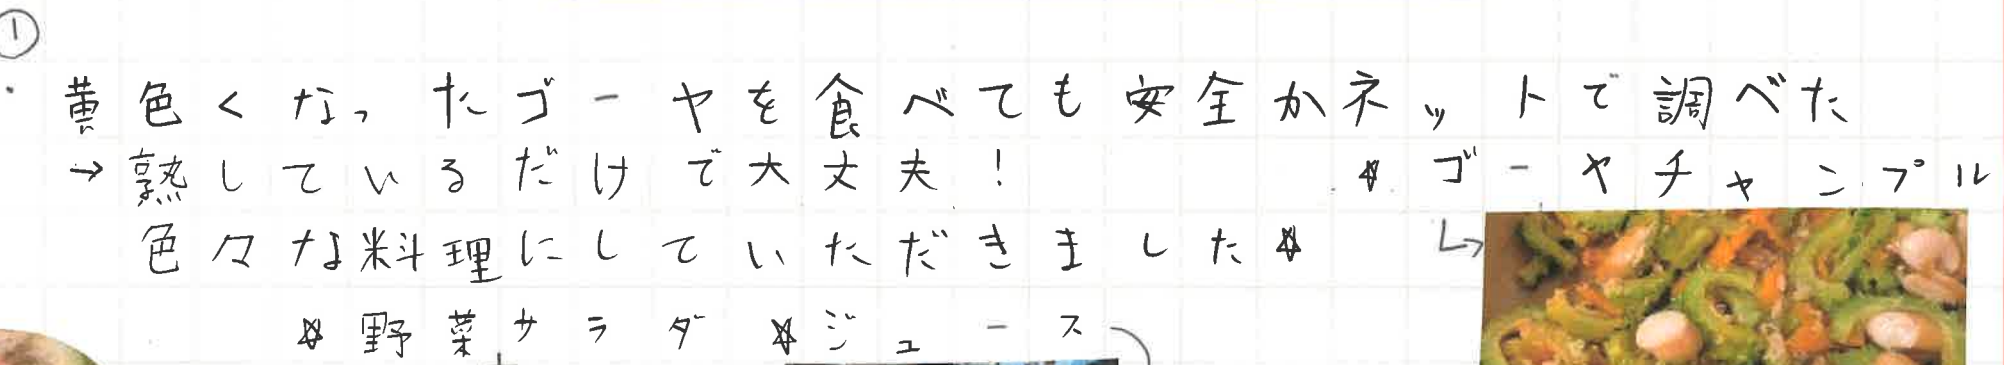 ①
・黄色くなったゴーヤを食べても安全かネットで調べた
→熟しているだけで大丈夫！ ☆ゴーヤチャンプル
色々な料理にしていただきました☆
☆野菜サラダ ☆ジュース